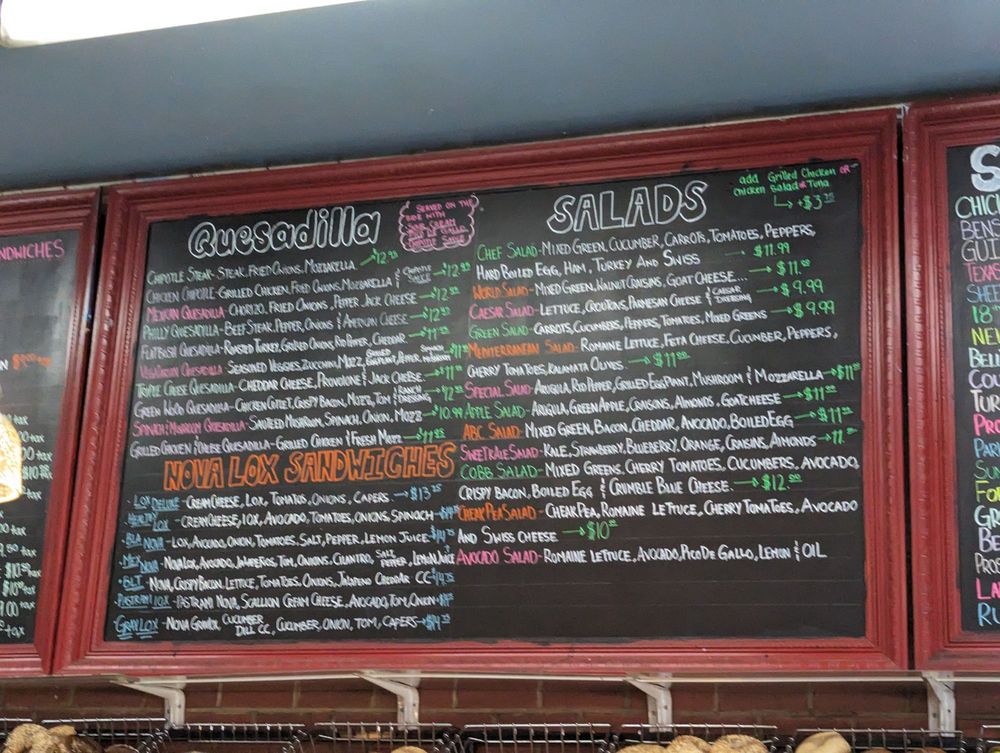 Quesadilla
SERVED ON THE
SIDE WITH
SOUR CREAM
PICO DE GALLO
CHIPOTLE SAUCE
CHIPOTLE STEAK - STEAK, FRIED ONIONS, MOZZARELLA
CHICKEN CHIPOTLE - GRILLED CHICKEN, FRIED ONIONS, MOZZARELLA & CHIPOTLE SAUCE
MEXICAN QUESADILLA - CHORIZO, FRIED ONIONS, PEPPER JACK CHEESE
PHILLY QUESADILLA - BEEF STEAK, PEPPER, ONIONS & AMERICAN CHEESE
FLATBUSH QUESADILLA - ROASTED TURKEY, GRILLED ONIONS, RED PEPPER, CHEDDAR
VEGETARIAN QUESADILLA - SEASONED VEGGIES, ZUCCHINI, MOZZ, GRILLED EGGPLANT, PEPPER,
TRIPLE CHEESE QUESADILLA - CHEDDAR CHEESE, PROVOLONE & JACK CHEESE
GREEN WOOD QUESADILLA - CHICKEN CUTLET, CRISPY BACON, MOZZ, TOM & RANCH DRESSING
SPINACH & MUSHROOM QUESADILLA - SAUTEED MUSHROOM, SPINACH, ONION, MOZZ → $10.99
GRILLED CHICKEN & CHEESE QUESADILLA - GRILLED CHICKEN & FRESH MOZZ
NOVA LOX SANDWICHES
LOX DELUXE - CREAM CHEESE, LOX, TOMATOS, ONIONS, CAPERS → $13.25
HEALTHY LOX - CREAM CHEESE, LOX, AVOCADO, TOMATOES, ONIONS, SPINACH
BLA NOVA - LOX, AVOCADO, ONION, TOMATOES, SALT, PEPPER, LEMON JUICE
MEX NOVA - NOVA LOX, AVOCADO, JALAPEÑOS, TOM, ONIONS, CILANTRO, SALT PEPPER, LEMON JUICE
BLT - NOVA, CRISPY BACON, LETTUCE, TOMATOES, ONIONS, JALAPENO CHEDDAR CC
PASTRAMI LOX - PASTRAMI NOVA, SCALLION CREAM CHEESE, AVOCADO, TOM, ONION
GRAV LOX - NOVA GRAVLOX, CUCUMBER DILL CC, CUCUMBER, ONION, TOM, CAPERS
SALADS
add Grilled Chicken OR
Chicken Salad OR Tuna
→ +$3.25
CHEF SALAD - MIXED GREEN, CUCUMBER, CARROTS, TOMATOES, PEPPERS,
HARD BOILED EGG, HAM, TURKEY AND SWISS → $11.99
WORLD SALAD - MIXED GREEN, WALNUT, CRAISINS, GOAT CHEESE...
CAESAR SALAD - LETTUCE, CROUTONS, PARMESAN CHEESE & CAESAR DRESSING → $9.99
GREEN SALAD - CARROTS, CUCUMBERS, PEPPERS, TOMATOES, MIXED GREENS → $9.99
MEDITERRANEAN SALAD - ROMAINE LETTUCE, FETA CHEESE, CUCUMBER, PEPPERS,
CHERRY TOMATOES, KALAMATA OLIVES
SPECIAL SALAD - ARUGULA, RED PEPPER, GRILLED EGGPLANT, MUSHROOM & MOZZARELLA
APPLE SALAD - ARUGULA, GREEN APPLE, CRAISINS, ALMONDS, GOAT CHEESE
ABC SALAD - MIXED GREEN, BACON, CHEDDAR, AVOCADO, BOILED EGG
SWEET KALE SALAD - KALE, STRAWBERRY, BLUEBERRY, ORANGE, CRAISINS, ALMONDS
COBB SALAD - MIXED GREENS, CHERRY TOMATOES, CUCUMBERS, AVOCADO,
CRISPY BACON, BOILED EGG & CRUMBLE BLUE CHEESE
CHEAK PEA SALAD - CHEAK PEA, ROMAINE LETTUCE, CHERRY TOMATOES, AVOCADO
AND SWISS CHEESE
AVOCADO SALAD - ROMAINE LETTUCE, AVOCADO, PICO DE GALLO, LEMON & OIL